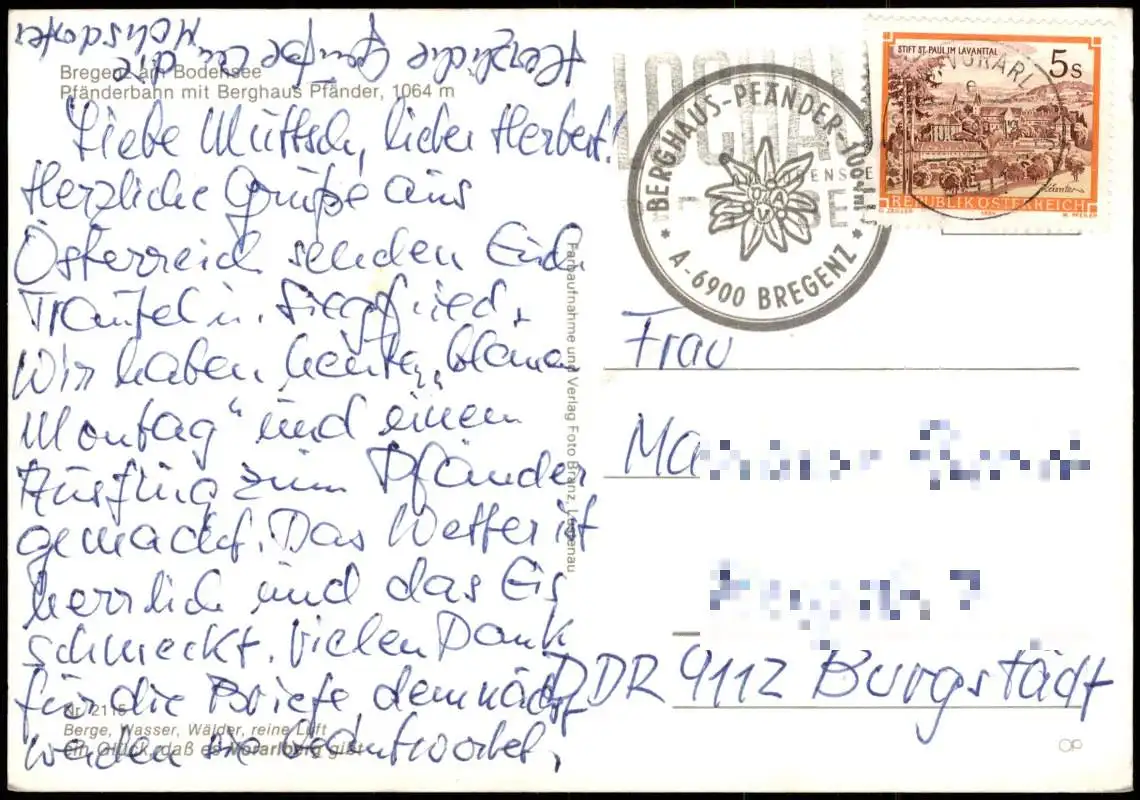 Bregenz am Bodensee
Pfänderbahn mit Berghaus Pfänder, 1064 m
Liebe Muttsch, lieber Herbert!
Herzliche Grüße aus
Österreich senden Euch
Traufel u. Siegfried.
Wir haben heute „blauen
Montag“ und einem
Ausflug zum Pfänder
gemacht. Das Wetter ist
herrlich und das Eis
schmeckt. Vielen Dank
für die Briefe, demnächst
werden sie beantwortet,
Herzliche Grüße an die
Nr. 2115
Berge, Wasser, Wälder, reine Luft
ein Glück, daß es Vorarlberg gibt
Farbaufnahme und Verlag Foto Branz, Lustenau
LOCHAU
BERGHAUS-PFÄNDER-1064m
DÖAV
* A-6900 BREGENZ *
STIFT ST. PAUL IM LAVANTTAL
5s
REPUBLIK ÖSTERREICH
Frau
Ma
DDR 9112 Burgstädt